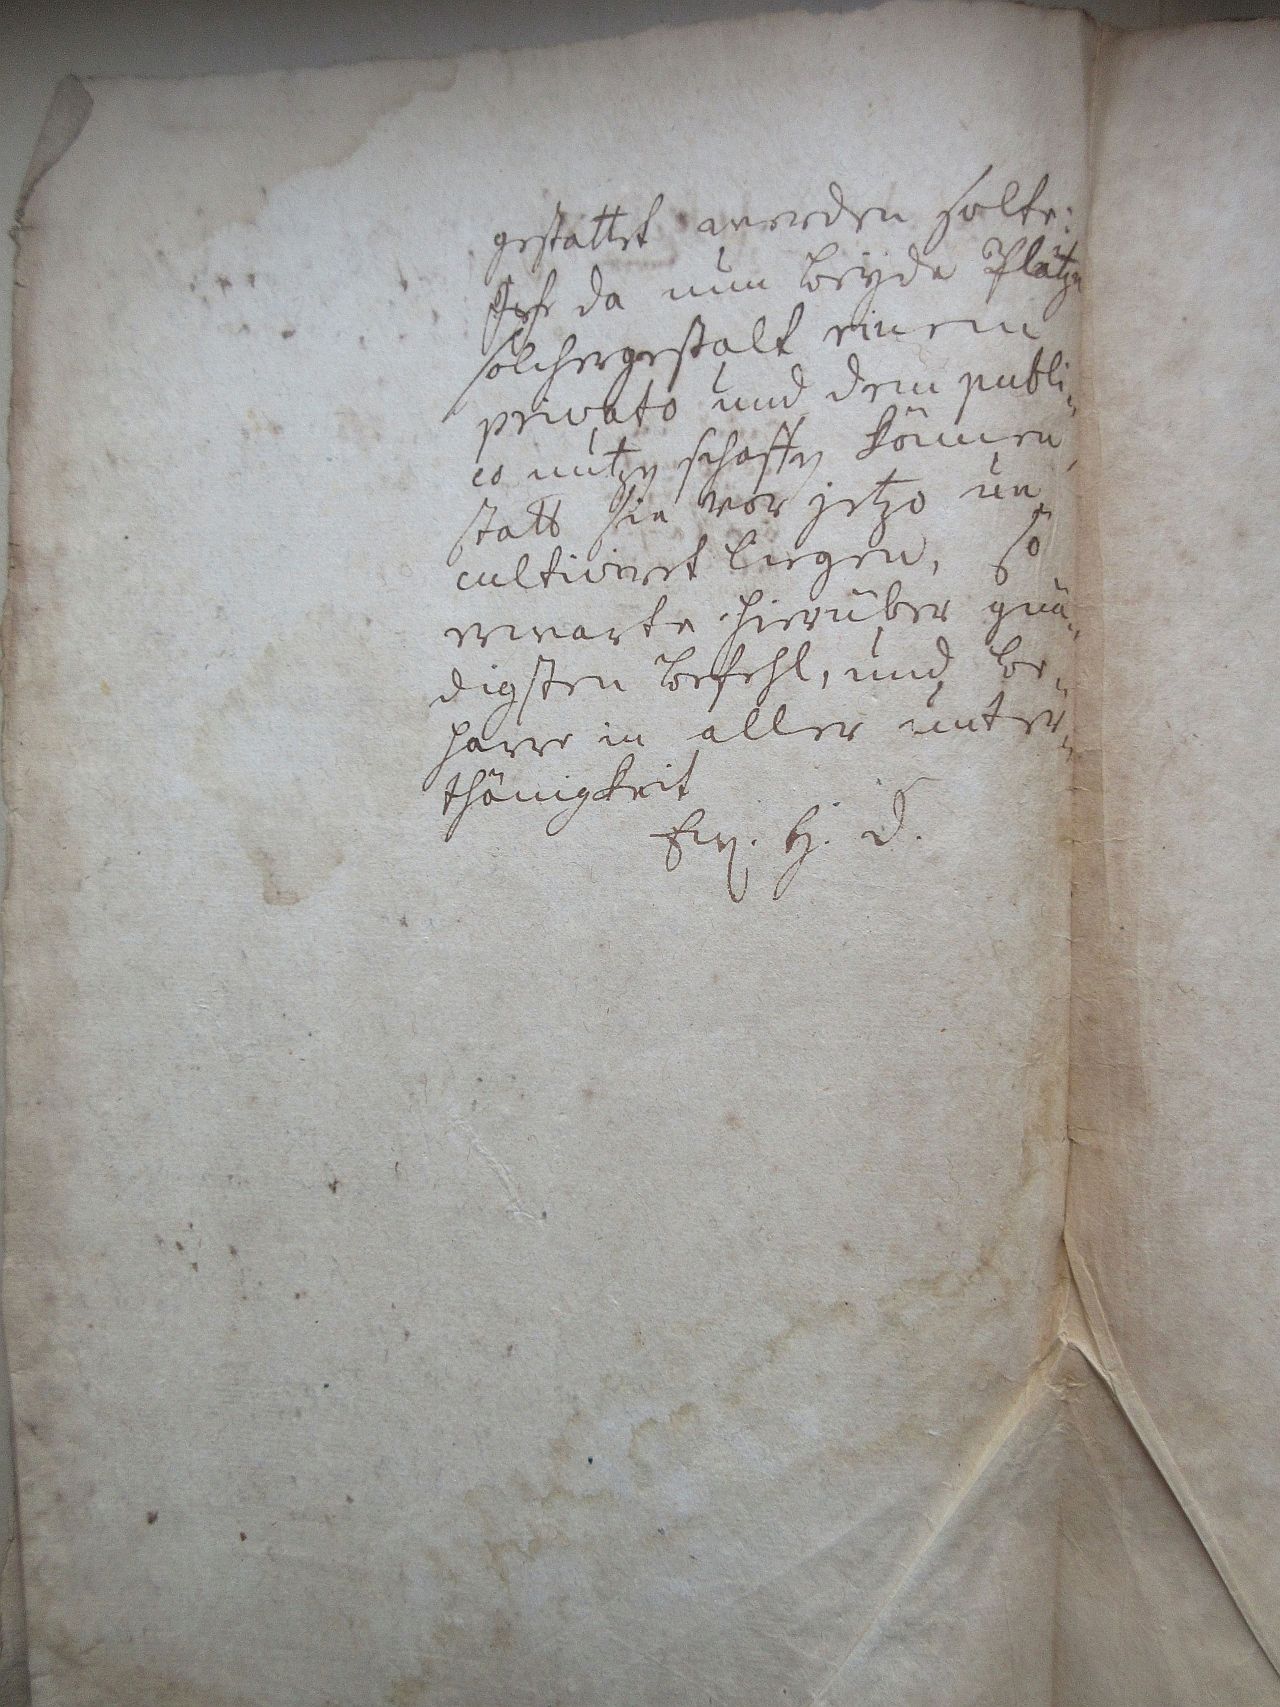 gestattet werden solte:
da nun beyde Plätze
solchergestalt einem
privato und dem publi-
co nutzen schaffen können,
statt sie vor jetzo un-
cultiviret liegen, so
erwarte hierüber gnä-
digsten befehl, und be-
harre in aller unter-
thänigkeit
Ew. H. D.